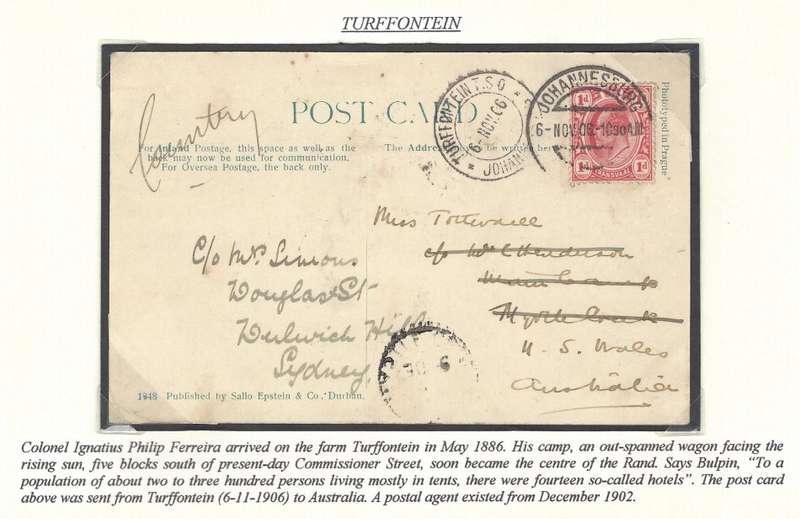 TURFFONTEIN
Country
POST CARD
For Inland Postage, this space as well as the
back may now be used for communication.
For Oversea Postage, the back only.
The Address to be written here
TURFFONTEIN T.S.O
6-NOV.06
JOHAN
JOHANNESBURG
6-NOV.06-1030AM
1d 1d
TRANSVAAL
1d 1d
Phototyped in Prague
Miss
c/o Mr C Henderson
N. S. Wales
Australia
c/o Mrs Simons
Douglas St
Dulwich Hill
Sydney
1848 Published by Sallo Epstein & Co., Durban.
Colonel Ignatius Philip Ferreira arrived on the farm Turffontein in May 1886. His camp, an out-spanned wagon facing the
rising sun, five blocks south of present-day Commissioner Street, soon became the centre of the Rand. Says Bulpin, “To a
population of about two to three hundred persons living mostly in tents, there were fourteen so-called hotels”. The post card
above was sent from Turffontein (6-11-1906) to Australia. A postal agent existed from December 1902.